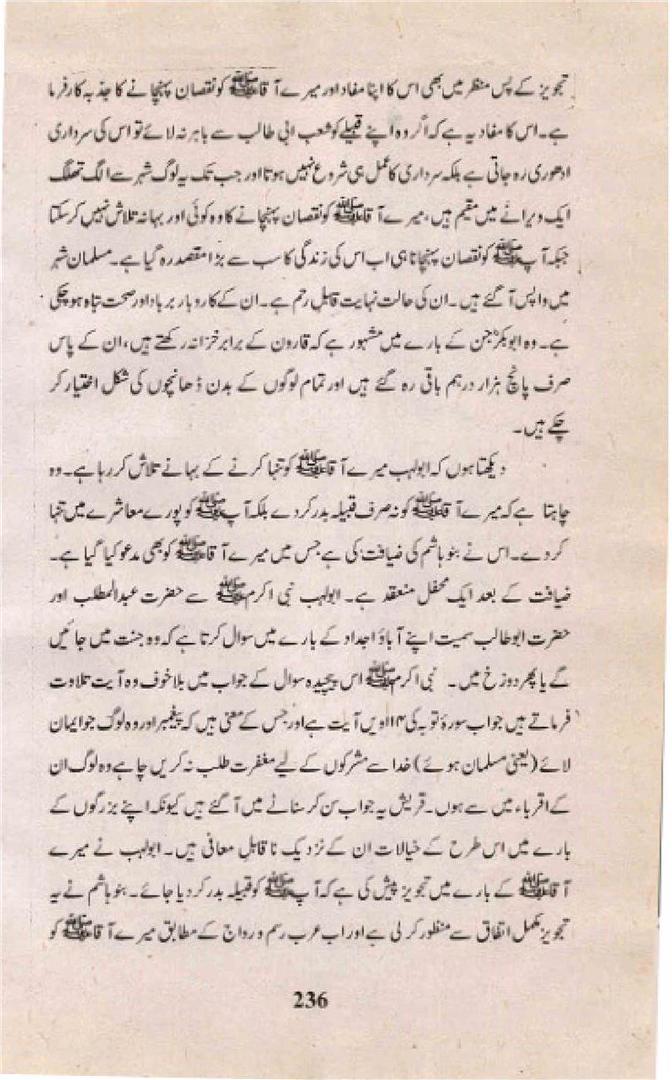 تجویز کے پس منظر میں بھی اس کا اپنا مفاد اور میرے آقا ﷺ کو نقصان پہنچانے کا جذبہ کارفرما
ہے۔ اس کا مفاد یہ ہے کہ اگر وہ اپنے قبیلے کو شعب ابی طالب سے باہر نہ لائے تو اس کی سرداری
ادھوری رہ جاتی ہے بلکہ سرداری کا عمل ہی شروع نہیں ہوتا اور جب تک یہ لوگ شہر سے الگ تھلگ
ایک ویرانے میں مقیم ہیں، میرے آقا ﷺ کو نقصان پہنچانے کا وہ کوئی اور بہانہ تلاش نہیں کر سکتا
جبکہ آپ ﷺ کو نقصان پہنچانا ہی اب اس کی زندگی کا سب سے بڑا مقصد رہ گیا ہے۔ مسلمان شہر
میں واپس آ گئے ہیں۔ ان کی حالت نہایت قابل رحم ہے۔ ان کے کاروبار برباد اور صحت تباہ ہو چکی
ہے۔ وہ ابوبکرؓ جن کے بارے میں مشہور ہے کہ قارون کے برابر خزانہ رکھتے ہیں، ان کے پاس
صرف پانچ ہزار درہم باقی رہ گئے ہیں اور تمام لوگوں کے بدن ڈھانچوں کی شکل اختیار کر
چکے ہیں۔
دیکھتا ہوں کہ ابولہب میرے آقا ﷺ کو تنہا کرنے کے بہانے تلاش کر رہا ہے۔ وہ
چاہتا ہے کہ میرے آقا ﷺ کو نہ صرف قبیلہ بدر کر دے بلکہ آپ ﷺ کو پورے معاشرے میں تنہا
کر دے۔ اس نے بنو ہاشم کی ضیافت کی ہے جس میں میرے آقا ﷺ کو بھی مدعو کیا گیا ہے۔
ضیافت کے بعد ایک محفل منعقد ہے۔ ابولہب نبی اکرم ﷺ سے حضرت عبدالمطلب اور
حضرت ابوطالب سمیت اپنے آباؤ اجداد کے بارے میں سوال کرتا ہے کہ وہ جنت میں جائیں
گے یا پھر دوزخ میں۔ نبی اکرم ﷺ اس پیچیدہ سوال کے جواب میں بلا خوف وہ آیت تلاوت
فرماتے ہیں جو اب سورۂ توبہ کی ۱۱۴ ویں آیت ہے اور جس کے معنی ہیں کہ پیغمبر اور وہ لوگ جو ایمان
لائے (یعنی مسلمان ہوئے) خدا سے مشرکوں کے لیے مغفرت طلب نہ کریں چاہے وہ لوگ ان
کے اقرباء میں سے ہوں۔ قریش یہ جواب سن کر سناٹے میں آ گئے ہیں کیونکہ اپنے بزرگوں کے
بارے میں اس طرح کے خیالات ان کے نزدیک نا قابل معافی ہیں۔ ابولہب نے میرے
آقا ﷺ کے بارے میں تجویز پیش کی ہے کہ آپ ﷺ کو قبیلہ بدر کر دیا جائے۔ بنو ہاشم نے یہ
تجویز مکمل اتفاق سے منظور کر لی ہے اور اب عرب رسم و رواج کے مطابق میرے آقا ﷺ کو
236